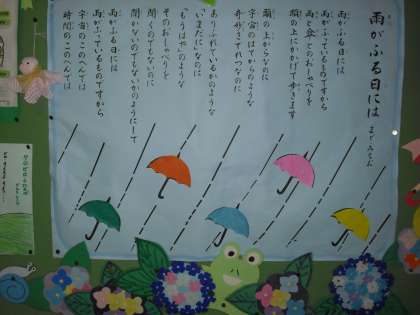 雨がふる日には
まど・みちお
雨がふる日には
雨がふっているものですから
雨と傘とのおしゃべりを
頭の上にかかげて歩きます
頭の上からなのに
宇宙のはてからのような
弁がさすれつなのに
ありふれているかのような
いまだになのに
「もうはや」のような
そのおしゃべりを
聞くのでもないのに
聞かないのでもないかのようにして
雨がふる日には
雨がふっているものですから
宇宙のこのへんでは
時間のこのへんでは